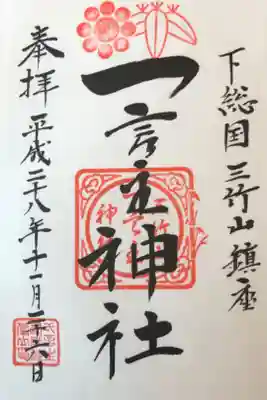 下総国 三竹山鎮座
一言主神社
奉拝 平成二十八年十一月二十六日